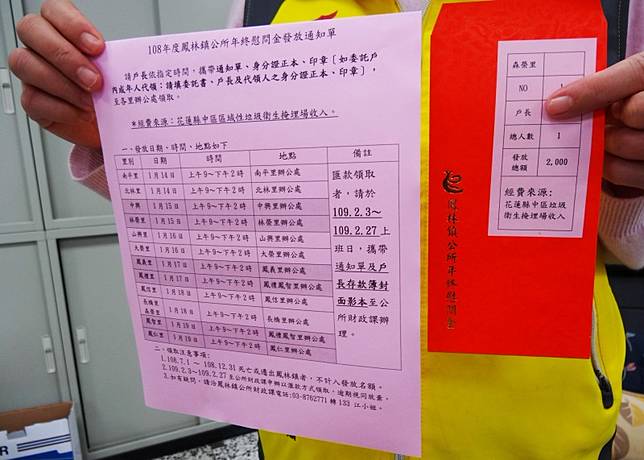 108年度鳳林鎮公所年終慰問金發放通知單
請戶長依指定時間，攜帶通知單、身分證正本、印章〔如委託戶
內成年人代領：請填委託書、戶長及代領人之身分證正本、印章〕，
至各里辦公處領取。
*經費來源：花蓮縣中區區域性垃圾衛生掩埋場收入。
一、發放日期、時間、地點如下
里別 日期 時間 地點 備註
南平里 1月14日 上午9~下午2時 南平里辦公處
北林里 1月14日 上午9~下午2時 北林里辦公處
中興 1月15日 上午9~下午2時 中興里辦公處
林榮里 1月15日 上午9~下午2時 林榮里辦公處
山興里 1月16日 上午9~下午2時 山興里辦公處
大榮里 1月16日 上午9~下午2時 大榮里辦公處
鳳義里 1月17日 上午9~下午2時 鳳義里辦公處
鳳禮里 1月17日 上午9~下午2時 鳳禮鳳智里辦公處
鳳信里 1月18日 上午9~下午2時 鳳信里辦公處
長橋里
森榮里 1月18日 上午9~下午2時 長橋里辦公處
鳳智里 1月19日 上午9~下午2時 鳳禮鳳智里辦公處
鳳仁里 1月19日 上午9~下午2時 鳳仁里辦公處
匯款領取
者，請於
109.2.3~
109.2.27上
班日，攜帶
通知單及戶
長存款簿封
面影本至公
所財政課辦
理。
二、領取注意事項：
1.108.7.1~108.12.31死亡或遷出鳳林鎮者，不計入發放名額。
2.109.2.3~109.2.27至公所財政課申辦以匯款方式領取，逾期視同放棄。
3.如有疑問，請洽鳳林鎮公所財政課電話:03-8762771轉133江小姐。
森榮里
NO 1
戶長
總人數 1
發放
總額 2,000
經費來源:
花蓮縣中區垃圾
衛生掩埋場收入
鳳林鎮公所年終慰問金